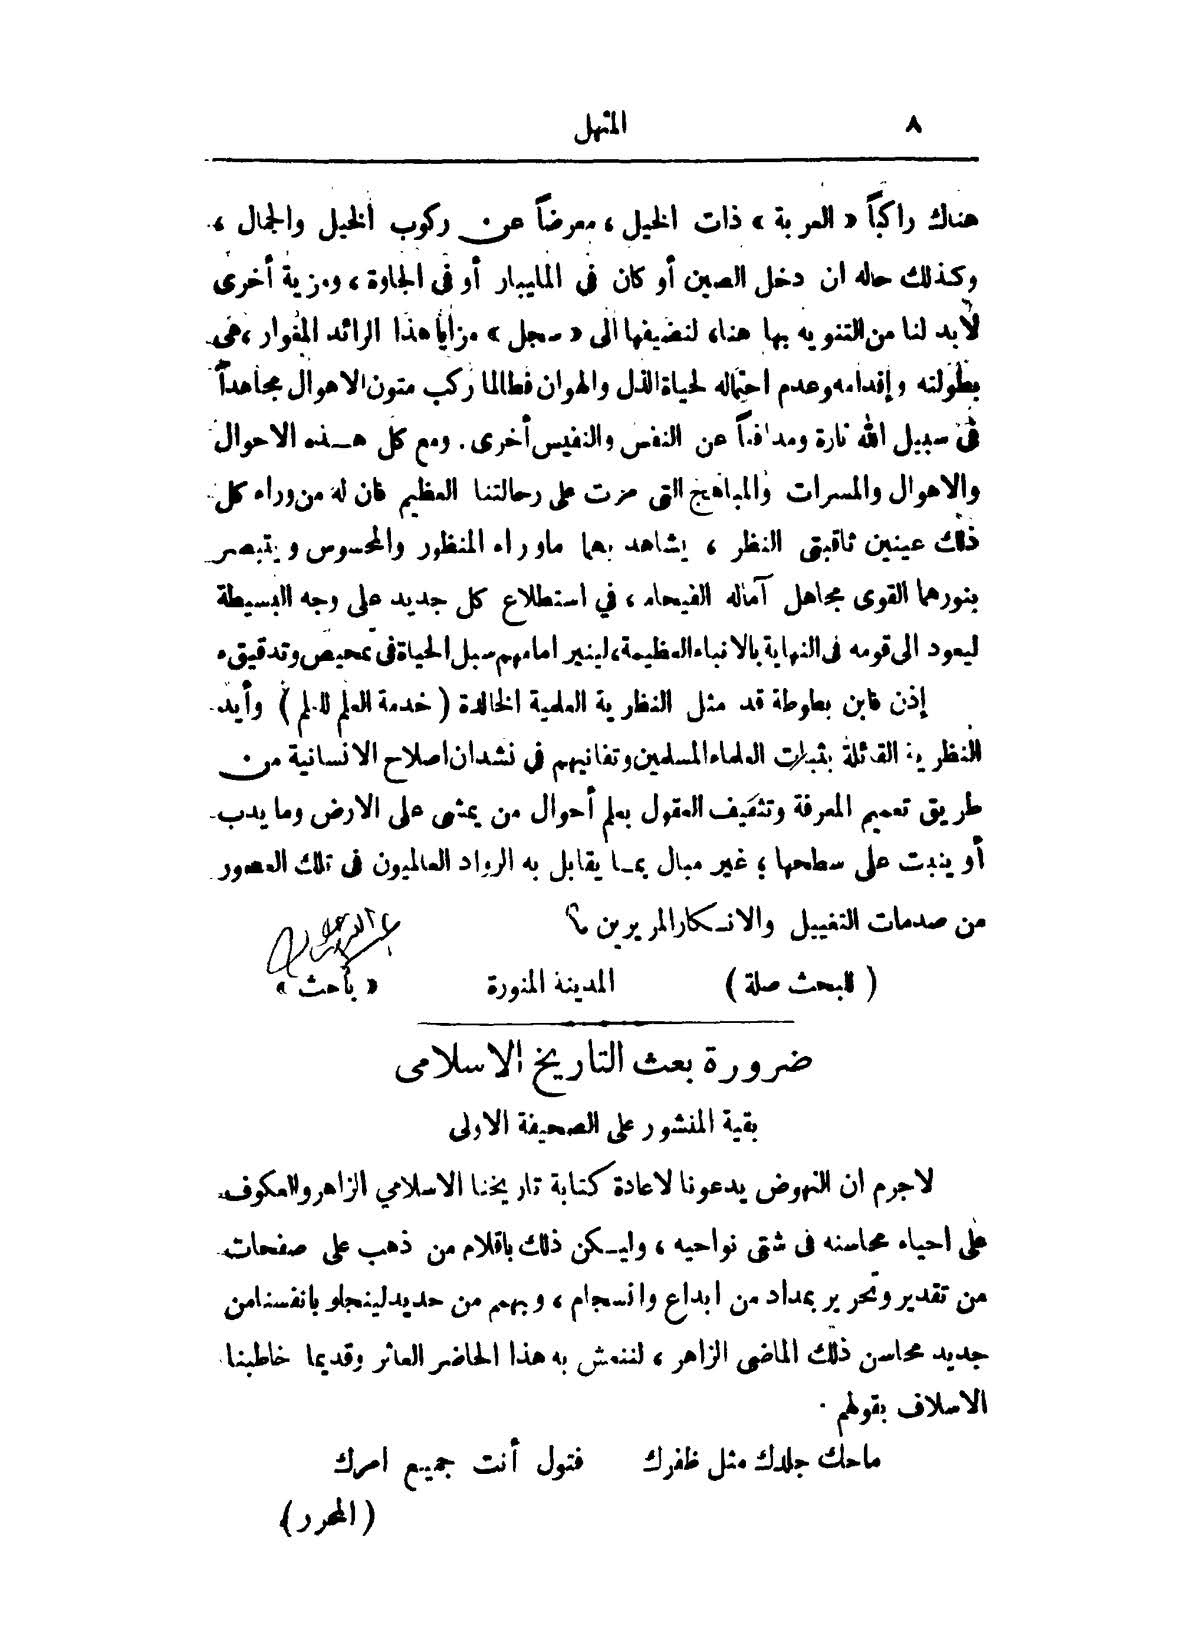 ٨ المنهل
هناك راكباً « العربة » ذات الخيل ، معرضاً عن ركوب الخيل والجمال ،
وكذلك حاله ان دخل الصين أو كان في المليبار أو في الجاوة ، ومزية أخرى
لابد لنا من التنويه بها هنا، لنضيفها الى « سجل » مزايا هذا الرائد المغوار ، هى
بطولته وإقدامه وعدم احتماله لحياة الذل والهوان فطالما ركب متون الاهوال مجاهداً
فى سبيل الله تارة ومدافعاً عن النفس والنفيس أخرى . ومع كل هـذه الاحوال
والاهوال والمسرات والمباهج التى مرت على رحالتنا العظيم فان له من وراء كل
ذلك عينين ثاقبتى النظر ، يشاهد بهما ماوراء المنظور والمحسوس ويتبصر
بنورهما القوى مجاهل آماله الفيحاء ، في استطلاع كل جديد على وجه البسيطة
ليعود الى قومه فى النهاية بالانباء العظيمة ، لينير امامهم سبل الحياة فى تمحيص وتدقيق ،
إذن فابن بطوطة قد مثل النظرية العلمية الخالدة ( خدمة العلم للعلم ) وأيد
النظرية القائلة بثبات العلماء المسلمين وتفانيهم في نشدان اصلاح الانسانية من
طريق تعميم المعرفة وتثقيف العقول بعلم أحوال من يمشى على الارض وما يدب
أو ينبت على سطحها ؛ غير مبال بمـا يقابل به الرواد العالميون فى تلك العصور
من صدمات التغييل والانـكار المريرين ؟
( للبحث صلة ) المدينة المنورة « باحث »
ضرورة بعث التاريخ الاسلامى
بقية المنشور على الصحيفة الاولى
لاجرم ان النهوض يدعونا لاعادة كتابة تاريخنا الاسلامي الزاهر والعكوف
على احياء محاسنه فى شتى نواحيه ، وليـكن ذلك باقلام من ذهب على صفحات
من تقدير وتحرير بمداد من ابداع وانسجام ، وبهمم من حديد لينجلو بانفسنا من
جديد محاسن ذلك الماضى الزاهر ، لننعش به هذا الحاضر العاثر وقديما خاطبنا
الاسلاف بقولهم .
ماحك جلدك مثل ظفرك فتول أنت جميع امرك
( المحرر )